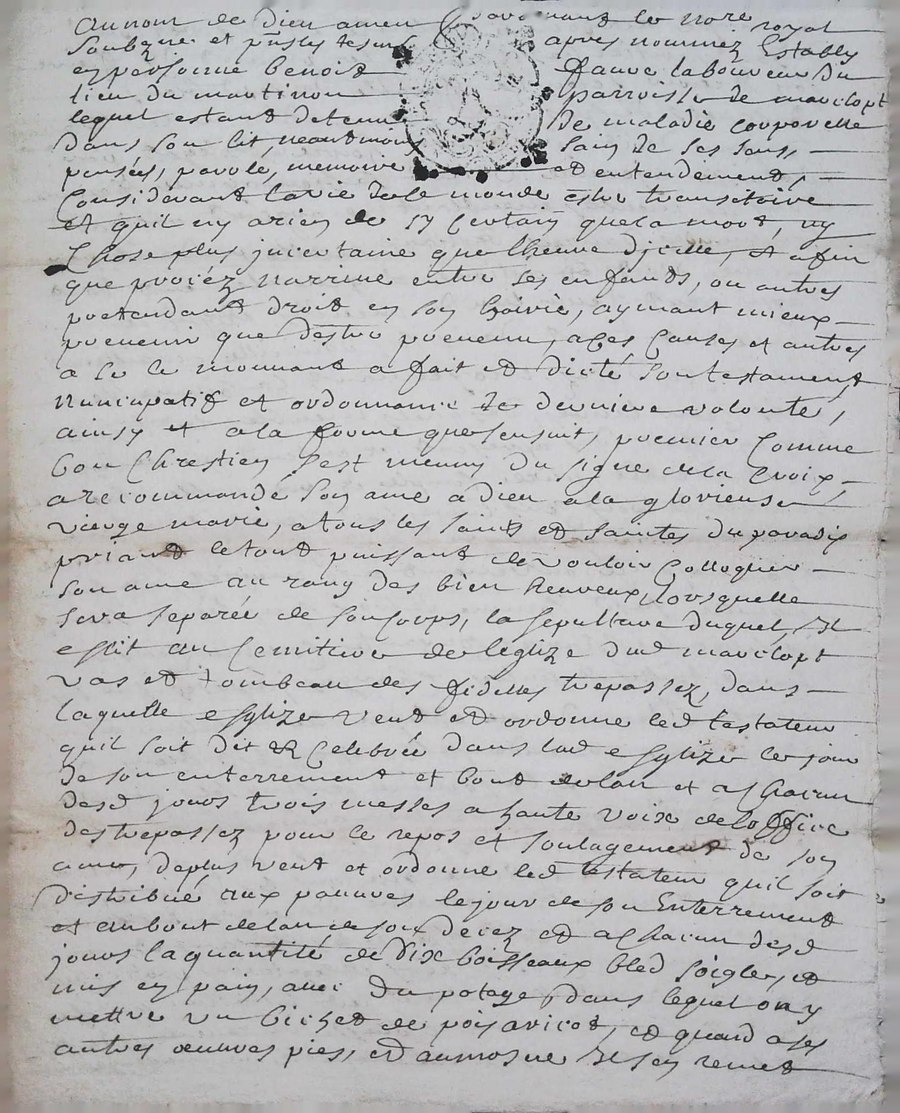 Au nom de Dieu amen Pardevant le no.re royal
soubzne et pnts tesm apres nommez Estably
en personne benoist faure laboureur du
lieu du martinon parroisse de marclopt
lequel estant detenu de maladie corporelle
dans son lit, neantmoin sain de ses sens,
pensées, parole, memoire et entendement,
Considerant la vie de le monde estre transitoire
et quil ny a rien de sy Certain que la mort, ny
Chose plus jncertaine que lheure djcelle, et afin
que procéz narrive entre ses enfants, ou autres
pretendant droit en son hoirie, aymant mieux
prevenir que destre prevenu, a Ces Causes et autres
a le mouvant a fait et dicté son testament
nuncupatif et ordonnance de derniere volonté,
ainsy et a la forme que sensuit, premier Comme
bon Chrestien sest meuny du signe de la Croix,
a recommandé son ame a dieu a la glorieuse
vierge marie, a tous les saints et saintes du paradix
priant le tout puissant de vouloir Colloquer
son ame au rang des bien heureux, lorsquelle
sera separée de son corps, la sepulture duquel, Il
eslit au Cemitiere de leglize dud marclopt
vas et tombeau des fidelles trepassez, dans
laquelle esglize veut et ordonne led testateur
quil soit dit et Celebrée dans lad esglize le jour
de son enterrement et bout de lan et a chacun
desd jours trois messes a haute voix de loffice
des trepassez pour le repos et soulagement de son
ame, deplus veut et ordonne led testateur quil soit
distribué aux pauvres le jour de son Enterrement
et au bout de lan de son decez et a chacun desd
jours la quantité de dix boisseaux bled soigle, et
mis en pain, avec du potage, dans lequel on y
mettre un bichet de pois aricot, et quand a ses
autres œuvres pies, et aumosne Il sen remet